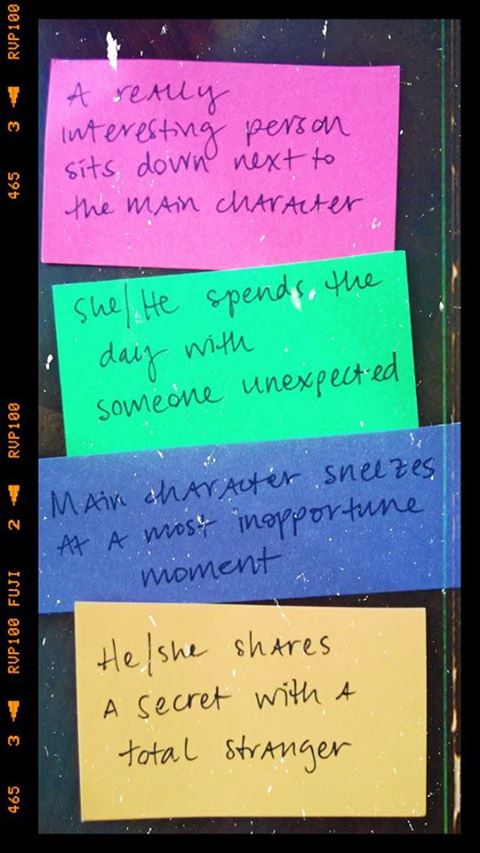 A really
interesting person
sits down next to
the main character
She/He spends the
day with
someone unexpected
Main character sneezes
At a most inopportune
moment
He/she shares
A secret with a
total stranger
RVP100
3
465
RVP100
2
RVP100 FUJI
3
465